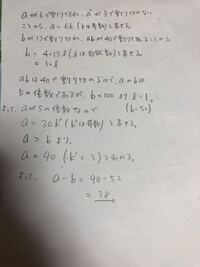 aが6で割り切れ、a²が8で割り切れない
ことから、a=6k (kは奇数)と表せる。
bが13で割り切れ、abが40で割り切れることから
b = 4・13l (lは自然数)と表せる
= 52l
abは40で割り切れるので、a または bは
5の倍数であるが、b<100 より l=1。
よって、aが5の倍数なので (b=52)
a = 30k' (k'は奇数) と表せる。
a > b より、
a = 90 (∵k' = 3) とわかる。
よって a - b = 90 - 52
= 38